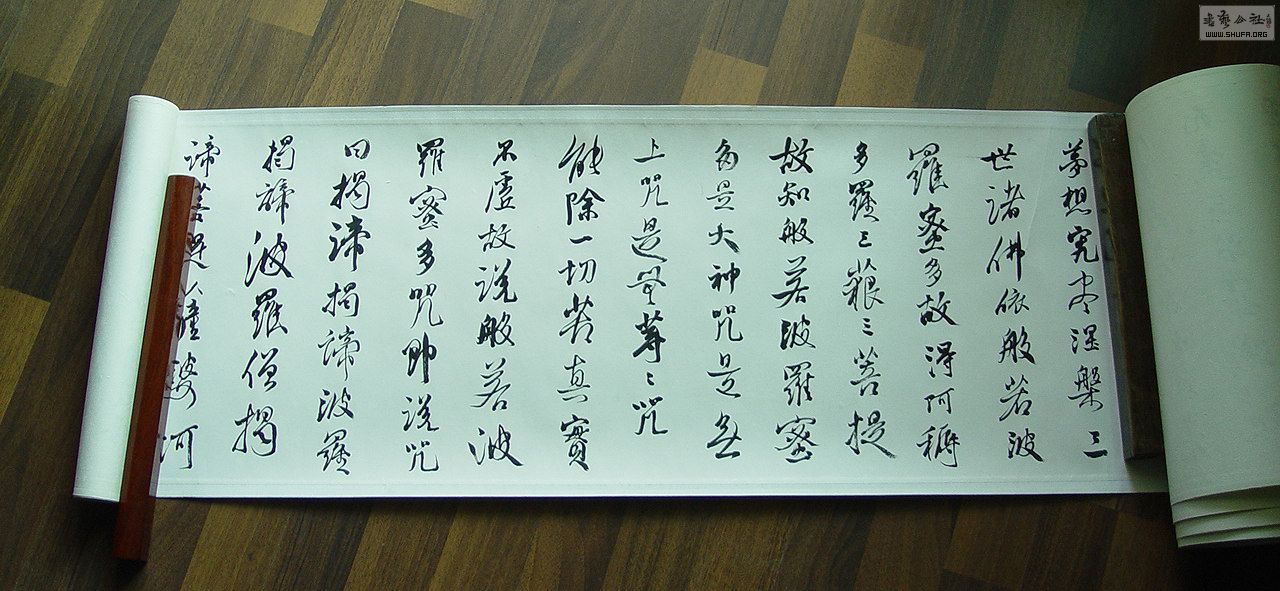 夢想究竟涅槃三
世諸佛依般若波
羅蜜多故得阿耨
多羅三藐三菩提
故知般若波羅蜜
多是大神咒是無
上咒是無等〻咒
能除一切苦真實
不虛故說般若波
羅蜜多咒即說咒
曰揭諦揭諦波羅
揭諦波羅僧揭
諦菩提薩婆訶
書藝公社
WWW.SHUFA.ORG